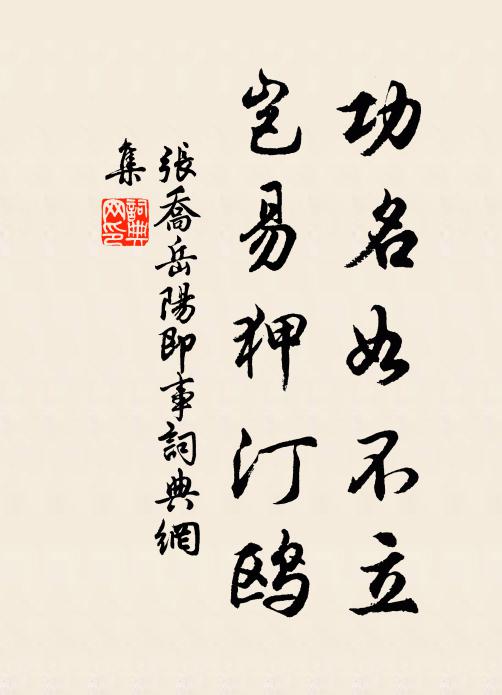 功名如不立
岂易狎汀鸥
張喬岳陽即事詞典網
集
詞典
网印